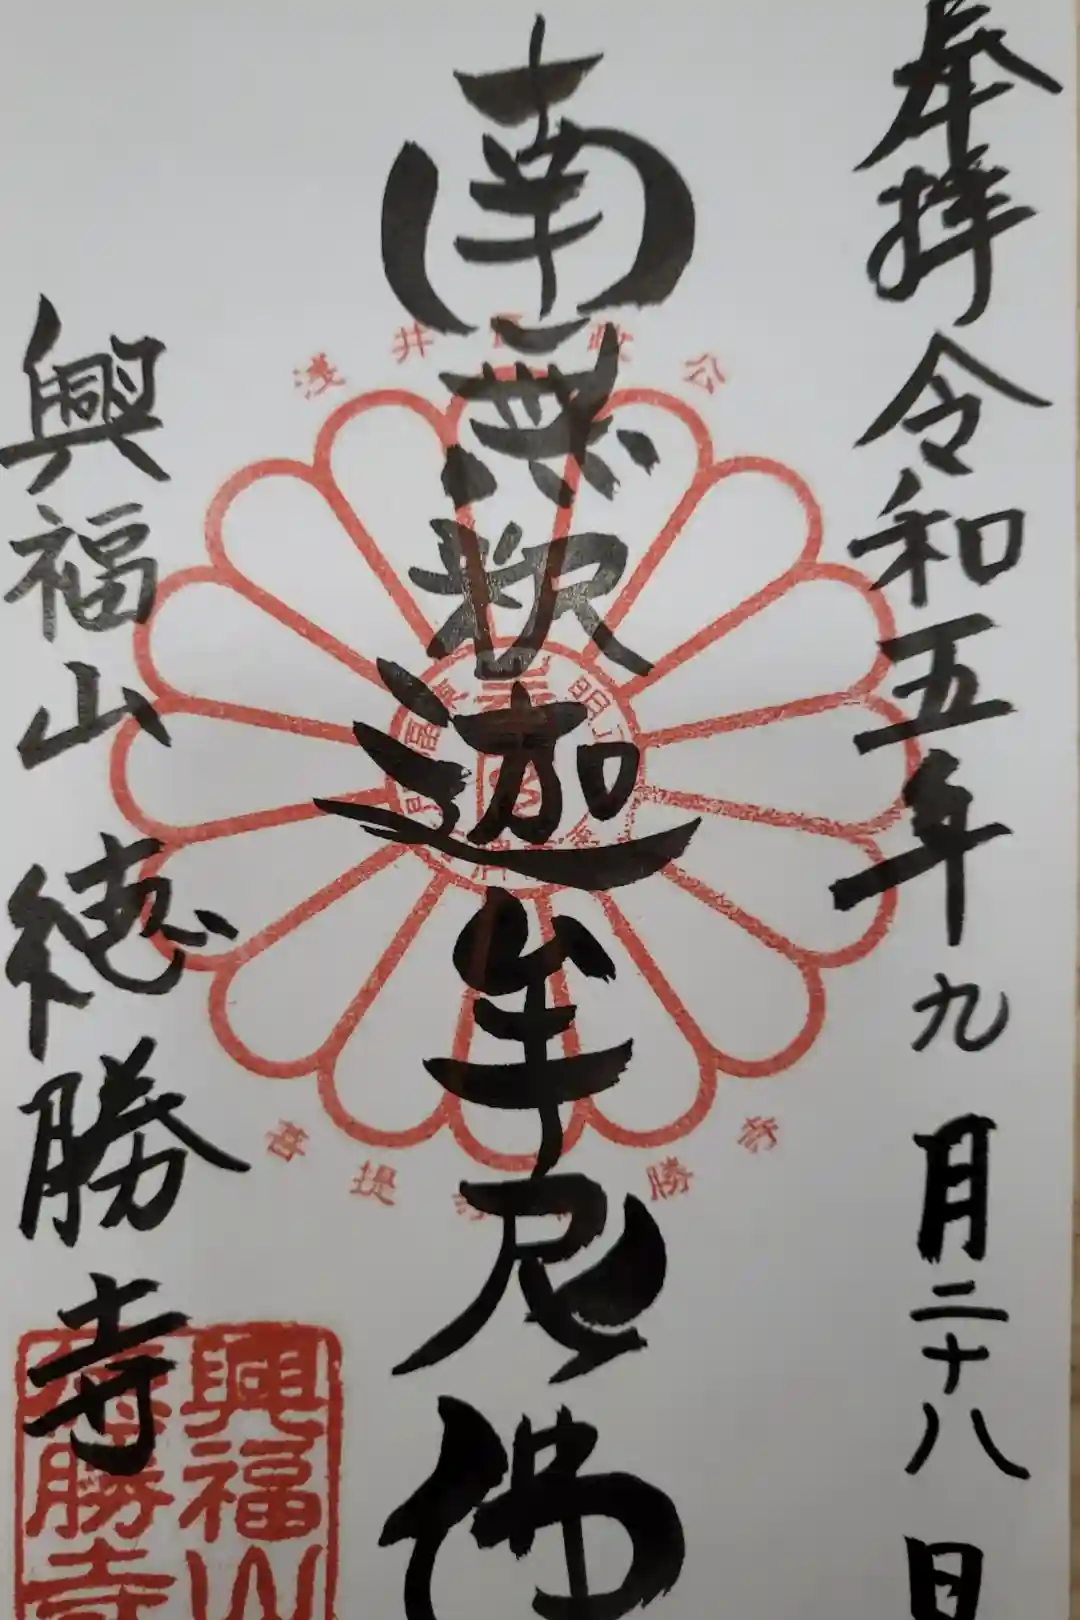 奉拝 令和五年九月二十八日
南無釈迦牟尼佛
興福山 徳勝寺
浅井長政公
菩提
勝
興福山
徳勝寺